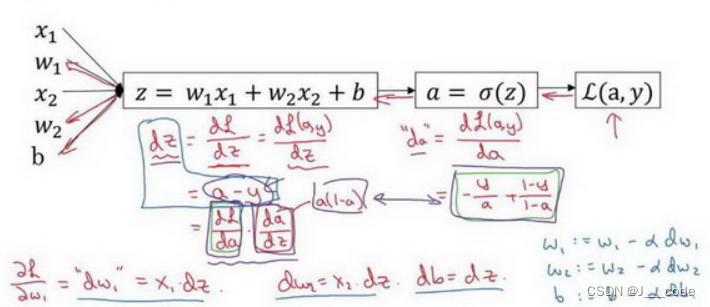 x₁
w₁
x₂
w₂
b
z = w₁x₁ + w₂x₂ + b
a = σ(z)
ℒ(a, y)
dz = dℒ/dz = dℒ(a,y)/dz
= a - y
= dℒ/da · da/dz
a(1-a)
"da" = dℒ(a,y)/da
= -y/a + 1-y/1-a
∂ℒ/∂w₁ = "dw₁" = x₁·dz.
dw₂ = x₂·dz.
db = dz.
w₁ := w₁ - α dw₁
w₂ := w₂ - α dw₂
b := b - α db
CSDN @J_L_code